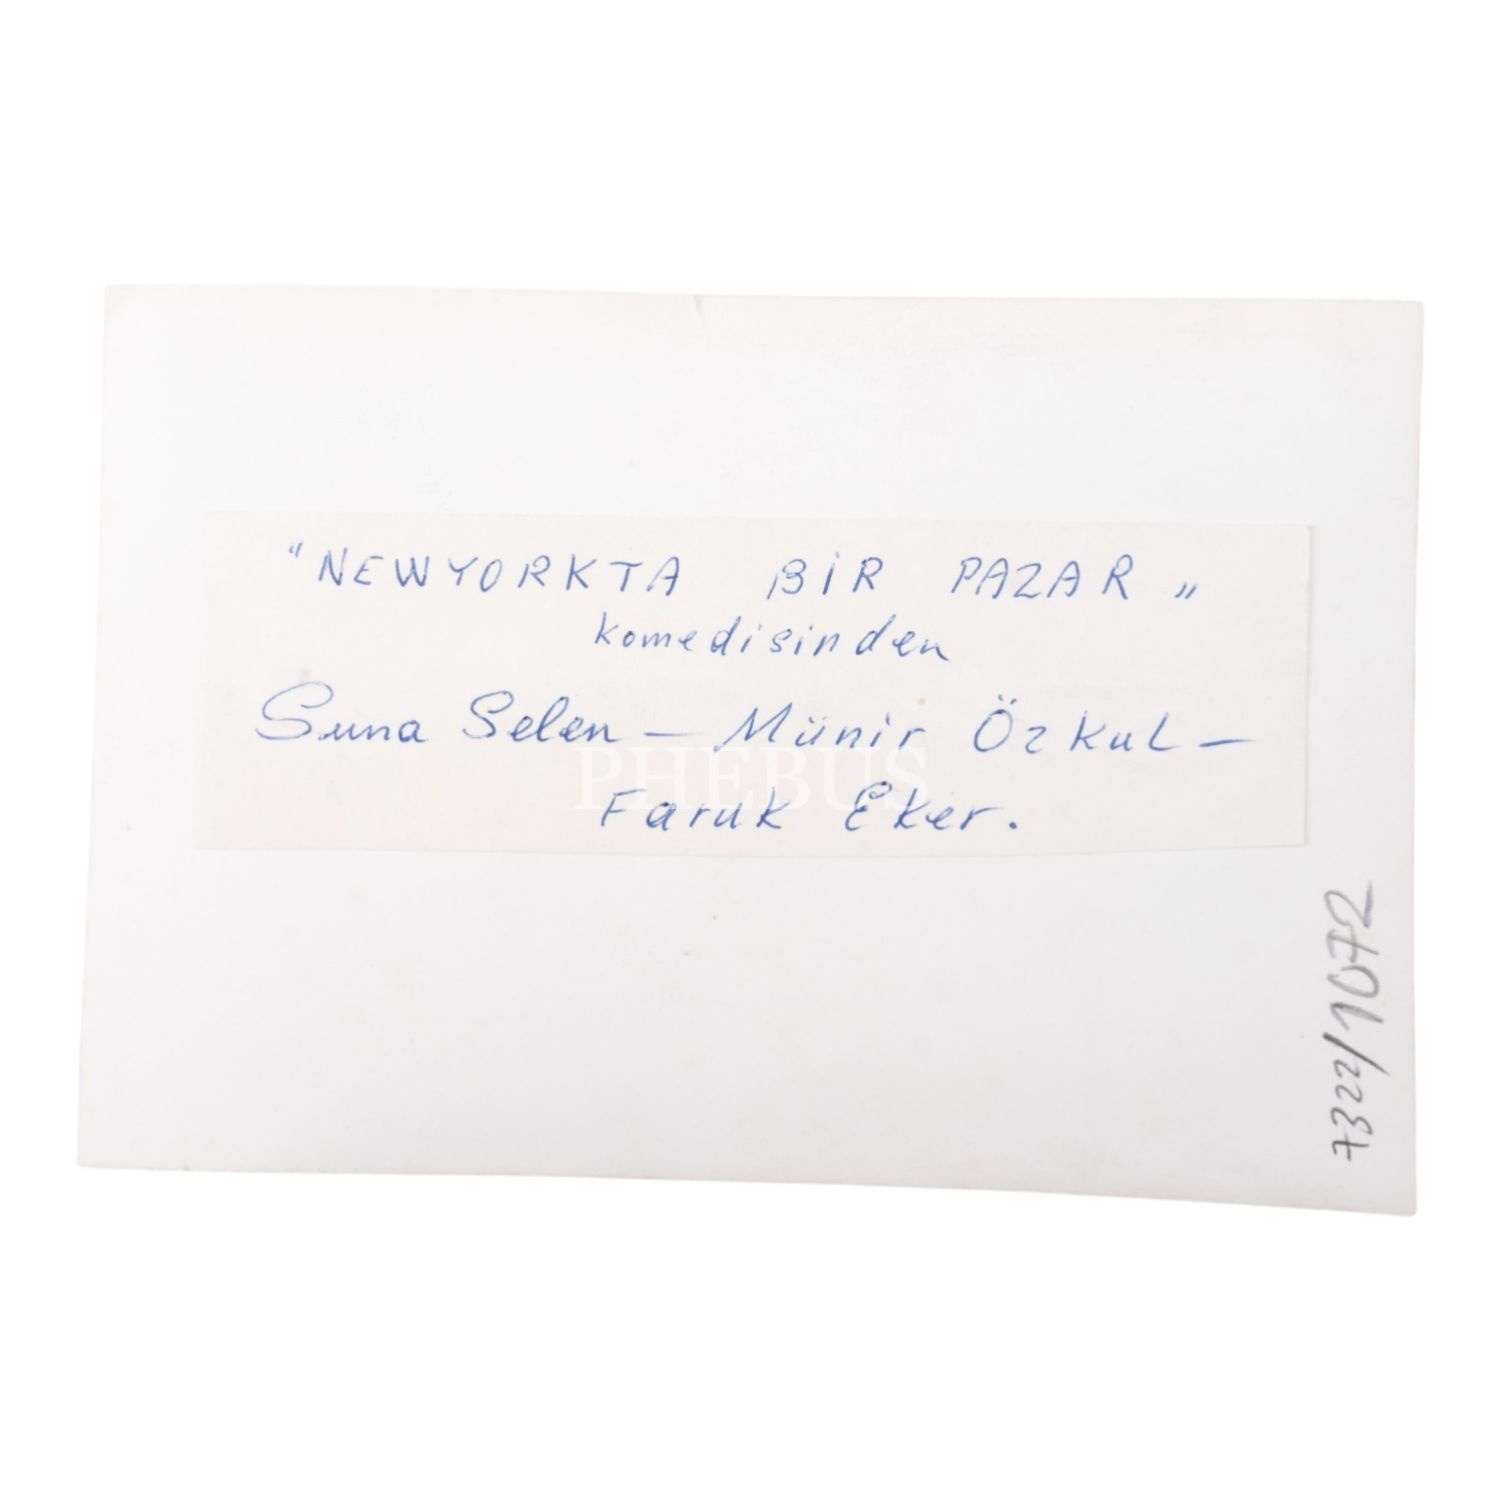 "NEWYORKTA BİR PAZAR"
komedisinden
Suna Selen — Münir Özkul —
Faruk Eker.
PHEBUS
7322/1072